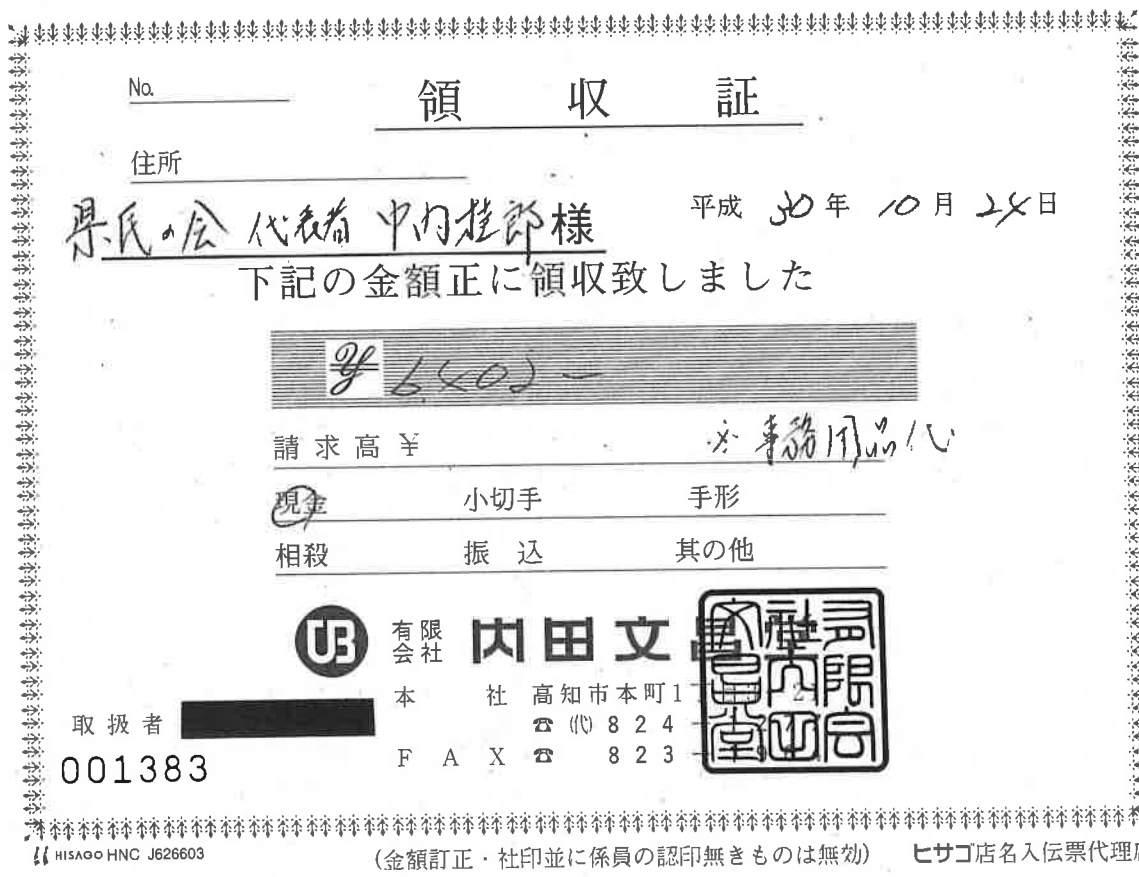 No.
領収証
住所
県民の会 代表者 中内桂郎様
平成 30年 10月 24日
下記の金額正に領収致しました
¥ 6,402 —
請求高¥
事務用品代
現金 小切手 手形
相殺 振込 其の他
UB 有限会社 内田文昌堂
本社 高知市本町1
☎(代)824
取扱者
FAX ☎ 823
001383
HISAGO HNC J626603
(金額訂正・社印並に係員の認印無きものは無効)
ヒサゴ店名入伝票代理